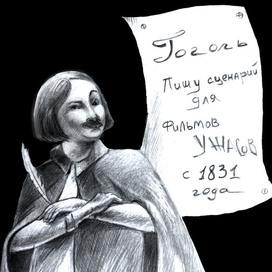 Гоголь
Пишу сценарий
для
фильмов
УЖАСОВ
с 1831
года